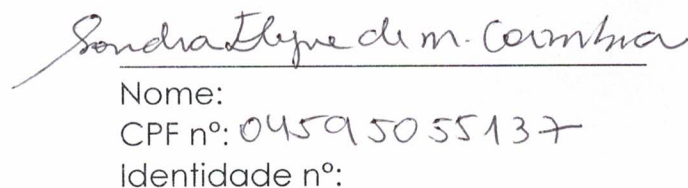 Sandra Elyne de M. Coimbra
Nome:
CPF nº: 04595055137
Identidade nº: